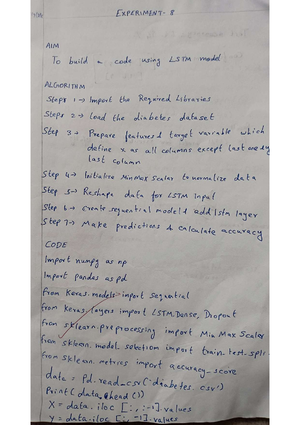 EXPERIMENT- 8
AIM
To build a code using LSTM model
ALGORITHM
Step 1 → Import the Required Libraries
Step 2 → Load the diabetes dataset
Step 3 → Prepare features & target variable which
define x as all columns except last one & y
last column
Step 4 → Initialize MinMax Scalar to normalize data
Step 5 → Reshape data for LSTM Input
Step 6 → create sequential model & add lstm layer
Step 7 → Make predictions & calculate accuracy
CODE
Import numpy as np
Import pandas as pd
from Keras.models import sequential
from Keras.layers import LSTM, Dense, Dropout
from sklearn.preprocessing import Min Max Scaler
from sklearn. model. selection import train. test-split
from sklearn. metrics import accuracy_score
data = Pd.read_csv('diabetes.csv')
Print(data.head())
X = data.iloc [:, :-1].values
y = data.iloc [:, -1].values